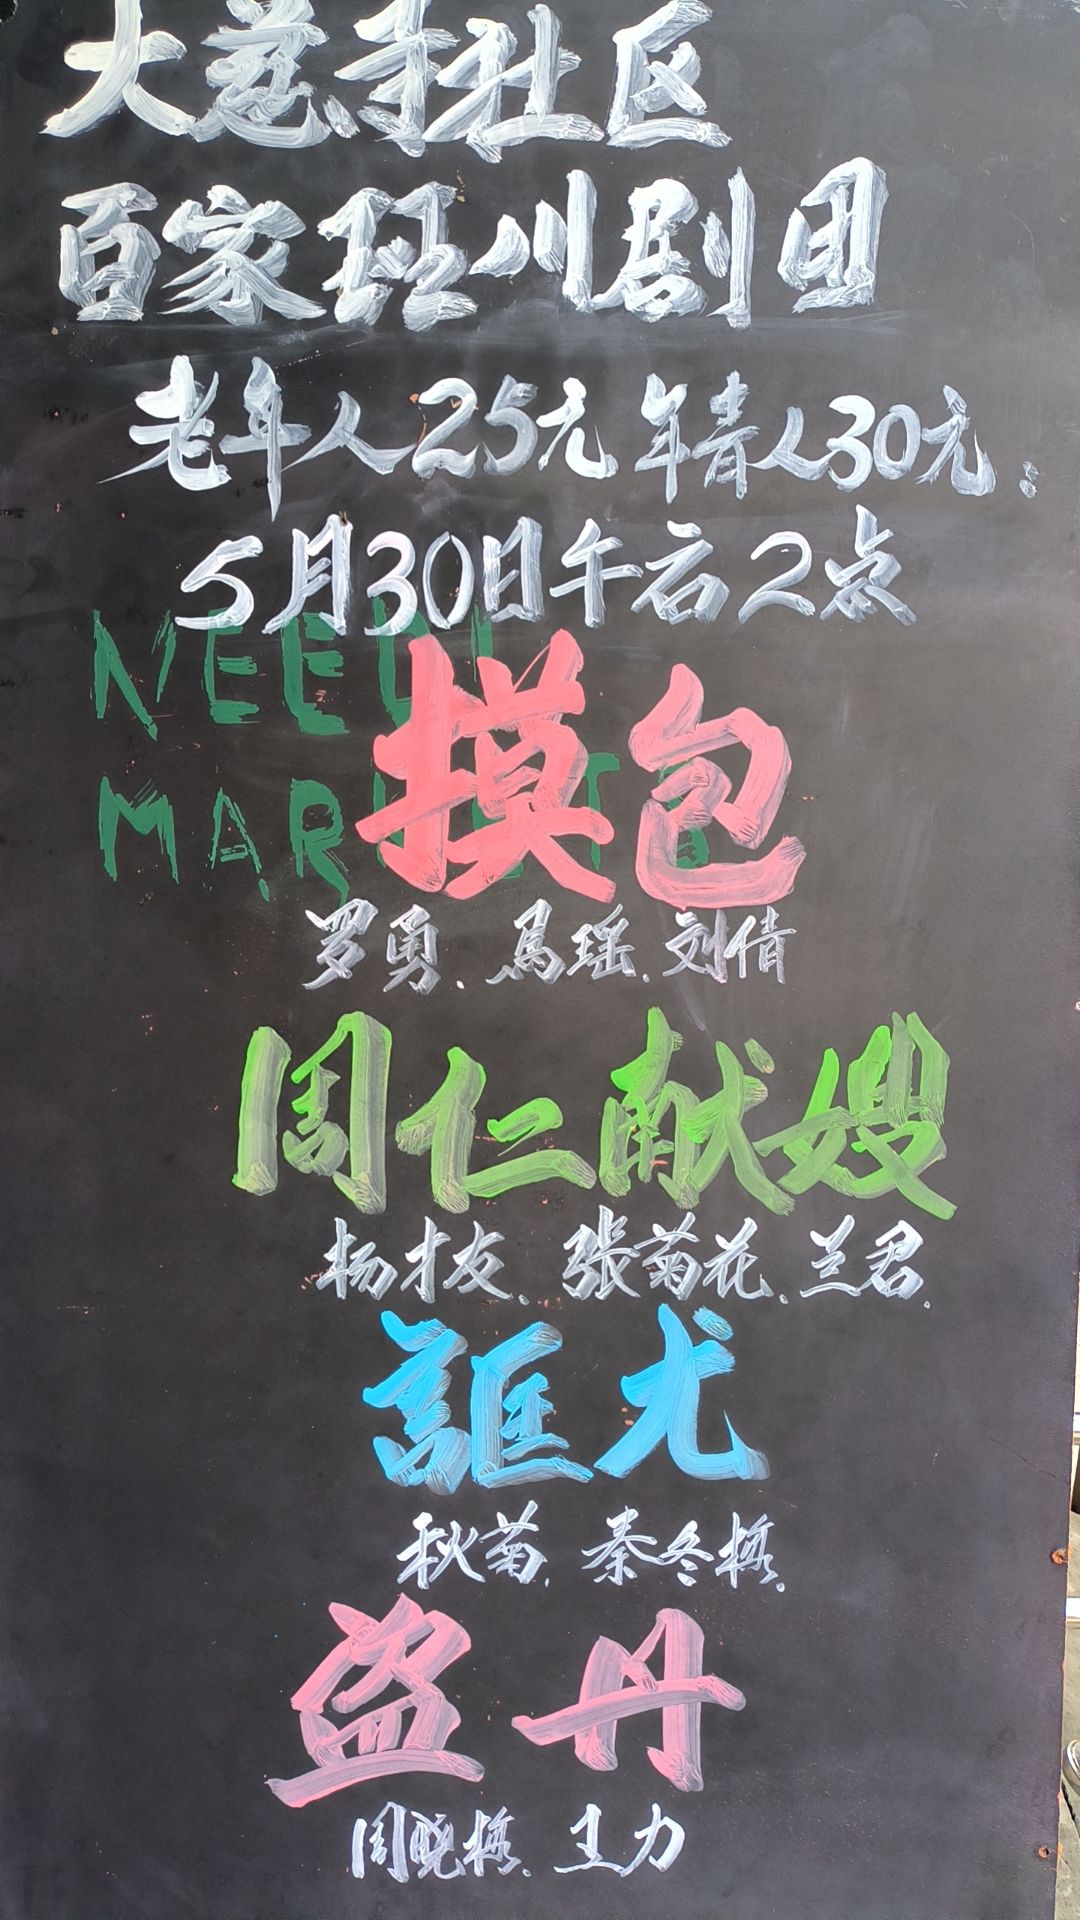 大慈寺社区
百家班川剧团
老年人25元 年青人30元:
5月30日午后2点
NEED
摸包
MAR
罗勇、馬瑶、刘倩
周仁献嫂
杨才友、张菊花、兰君、
誆尤
秋菊、秦冬梅、
盗丹
周晓梅、王力